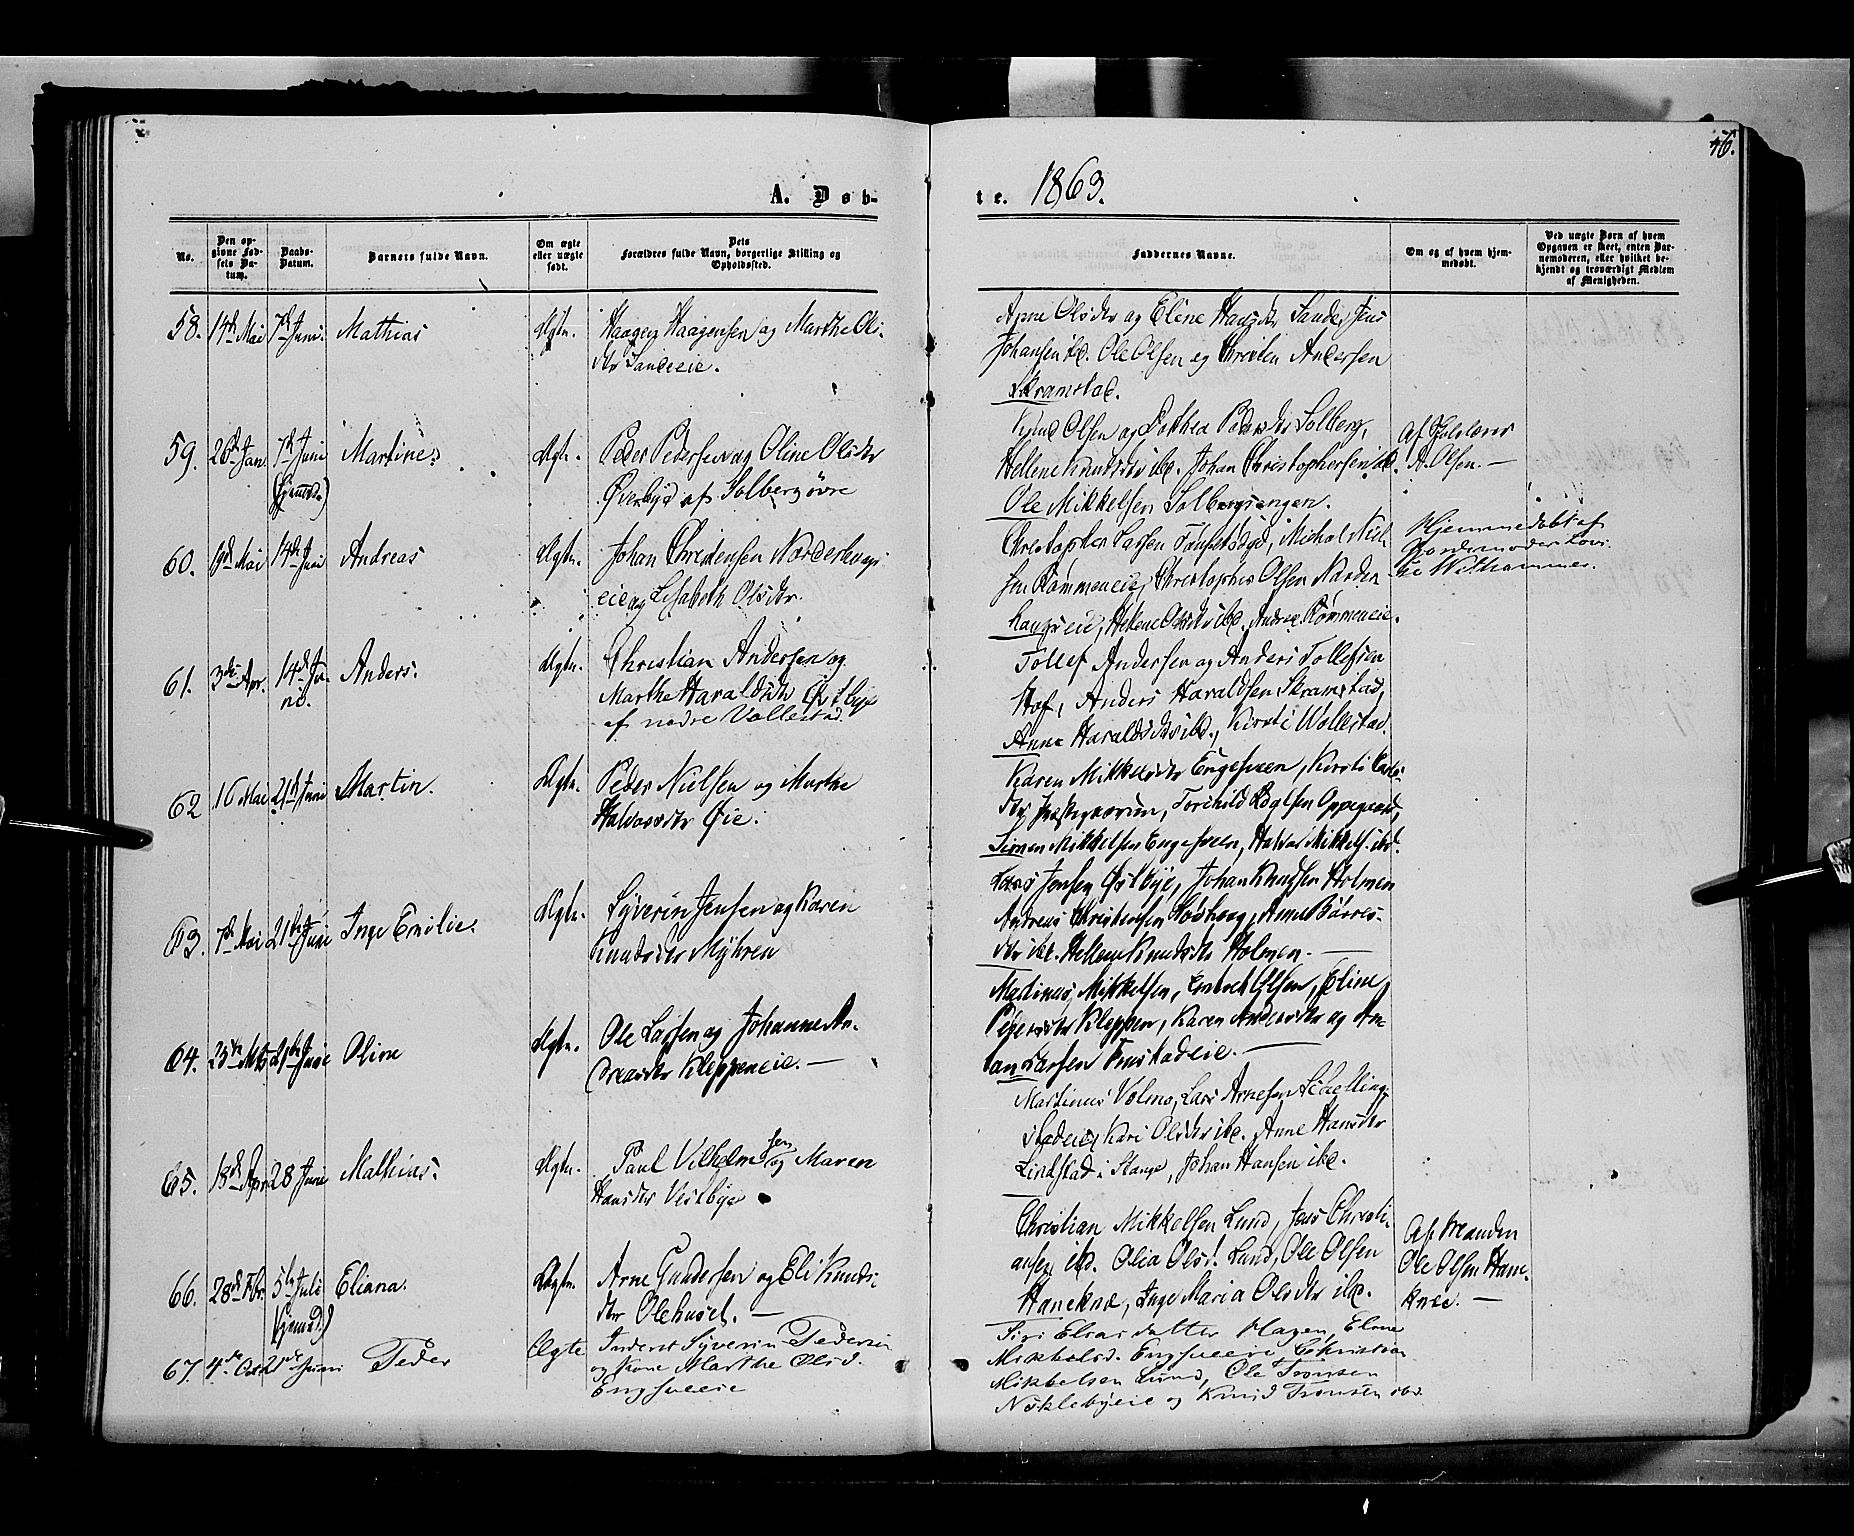 46.
A. Døb-
te. 1863.
No.
Den op-
givne Fød-
sels Da-
tum.
Daabs-
Datum.
Barnets fulde Navn.
Om ægte
eller uægte
født.
Dets
Forældres fulde Navn, borgerlige Stilling og
Opholdssted.
Faddernes Navne.
Om og af hvem hjem-
medøbt.
Ved uægte Børn af hvem
Opgaven er skeet, enten Bar-
nemoderen, eller hvilket be-
kjendt og troværdigt Medlem
af Menigheden.
58. 14de Mai 7de Juni. Mathias Ægte. Haagen Haagensen og Marthe Ols-
dtr Sandeeie.
Arne Olsdtr og Eline Hansdtr Sande, Jens
Johansen ibd. Ole Olsen og Christen Andersen
Skramstad.
59. 26de Jan. 7de Juni (hjemmed.) Martine Ægte. Peder Pedersen og Oline Olsdtr
Øverbye af Solberg øvre
Olsen og Dorthea Pedersdtr Solberg,
Hellene Knudsdtr ibd. Johan Christophersen ibd.
Ole Mikkelsen Solbergsengen.
Af Skolelærer
A. Olsen.
60. 19de Mai 14de Juni Andreas Ægte. Johan Christensen Norderhougs-
eie og Lisabeth Olsdtr.
Christopher Larsen Tomsetsbyd, Michal Niel-
sen Rømmeneie, Christopher Olsen Norder-
hougseie, Helene Olsdtr ibd. Andrea Rømmeneie.
Hjemmedøbt af
Jordemoder Lovi-
se Wethammer.
61. 3die Apr. 14de Ju-
ni. Anders. Ægte. Christian Andersen og
Marthe Haraldsdtr Østbye
af nedre Vollestad.
Tollef Andersen og Anders Tollefsen
Hof, Anders Haraldsen Skramstad,
Anne Haraldsdtr ibd., Kirsti Wollestad.
62 16 Mai 21de Juni Martin. Ægte. Peder Nielsen og Marthe
Halvorsdtr Øie.
Karen Mikkelsdtr Engesveen, Kirsti Lars-
dtr Præstegaarden, Torchild Oppegaard,
Simen Mikkelsen Engesveen, Halvor Mikkels. ibd.
63. 7de Mai 21de Juni Inge Emilie. Ægte. Syverin Jensen og Karen
Knudsdtr Myhren
Lars Jensen Østbye, Johan Knudsen Holmen
Andreas Christensen, Anne Børres-
dtr ibd. Hellene Knudsdtr Holmen.
64. 25de Mts 21de Juni Oline Ægte. Ole Larsen og Johanne An-
dreasdtr Kleppeneie.
Martinus Mikkelsen, Olsen, Eline
Pedersdtr Kleppen, Karen Andersdtr og An-
65. 13de Apr. 28 Juni Mathias. Ægte. Paul Vilhelmsen og Maren
Hansdtr Vestbye
Martinus Volmo, Lars Arnesen
stadeie, Kari Olsdtr ibd. Anne Hansdtr
Lindstad i Stange, Johan Hansen ibd.
66. 28de Fbr. 5te Juli (hjemmed.) Eliana. Ægte. Arne Gundersen og Eli Knuds-
dtr Olehuset.
Christian Mikkelsen Lund, Jens Christi-
ansen ibd. Olia Olsd. Lund, Ole Olsen
Haneknæ, Inge Maria Olsdtr ibd.
Af Manden
Ole Olsen Hane-
knæ.
67. 4de Oct 21de Juni Peder Ægte Inderst Syverin Pedersen
og Kone Marthe Olsd.
Engsveeie
Siri Eliasdatter Hagen, Eline
Mikkelsd. Engsveeie, Christian
Mikkelsen Lund, Ole Tronsen
Nøklebyeie og Knud Tronsen ibd.